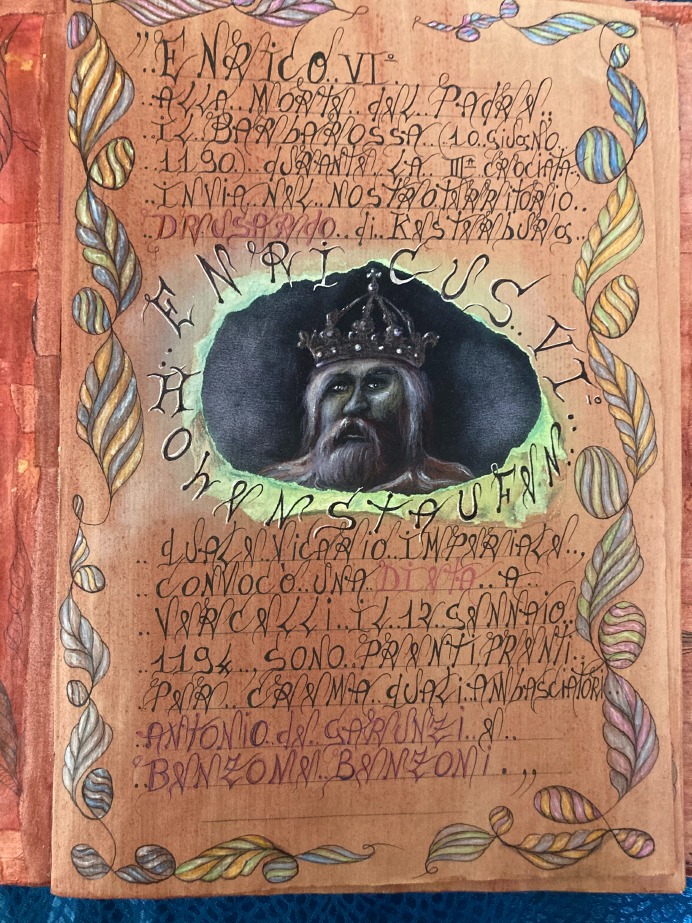 "ENRICO VI°
ALLA MORTE del PADRE..
IL BARBAROSSA (10 giugno
1190) durante LA IIIª CROCIATA,
INVIA NEL NOSTRO TERRITORIO..
DRUSARDO.. di Kesterburg..
ENRICUS VI°
HOHENSTAUFEN
quale VICARIO IMPERIALE..,
CONVOCÒ UNA DIETA.. A..
VERCELLI.. IL 12 GENNAIO..
1194.., SONO.. PRENTI PRENTI..
PER CREMA quali AMBASCIATORI
ANTONIO de GARUNZI e..
BENZONE BENZONI.."